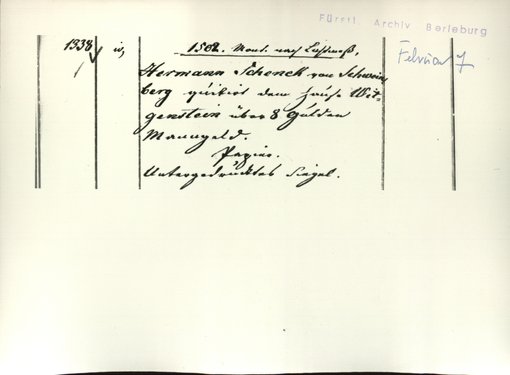 Fürstl. Archiv Berleburg
1338
1502. Mont. nach Lichtmeß.
Februar 7
Hermann Schenck von Schweins
berg quitirt dem Hause Wit-
genstein über 8 Gulden
Manngeld.
Papier.
Untergedrucktes Siegel.